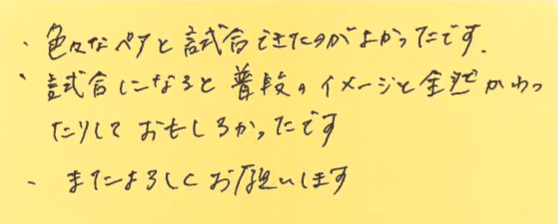 ・色々なペアと試合できたのがよかったです.
・試合になると普段のイメージと全然かわっ
たりしておもしろかったです
・またよろしくお願いします